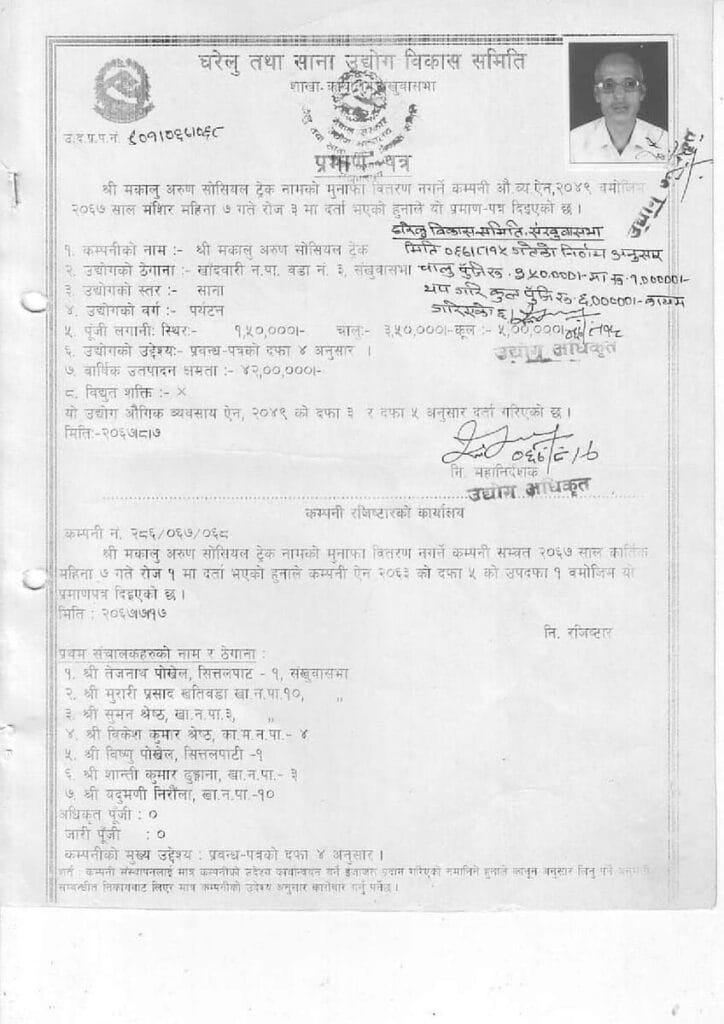 घरेलु तथा साना उद्योग विकास समिति
शाखा कार्यालय संखुवासभा
उ.द.प्र.प.नं.
प्रमाण-पत्र
श्री मकालु अरुण सोसियल ट्रेक नामको मुनाफा वितरण नगर्ने कम्पनी औ.व्य.ऐन,२०४९ वमोजिम
२०६७ साल मंशिर महिना ७ गते रोज ३ मा दर्ता भएको हुनाले यो प्रमाण-पत्र दिइएको छ ।
घरेलु विकास समिति, संखुवासभा
१. कम्पनीको नाम :- श्री मकालु अरुण सोसियल ट्रेक
मिति ०६८।८।१५ गतेको निर्णय अनुसार
२. उद्योगको ठेगाना :- खाँदवारी न.पा. वडा नं. ३, संखुवासभा
चालु पुँजि रु. ३५००००।- मा रु. १,०००००।-
३. उद्योगको स्तर :- साना
थप गरि कुल पुँजि रु. ६,०००००।- कायम
४. उद्योगको वर्ग :- पर्यटन
गरिएको छ।
५. पूंजी लगानी: स्थिर:- १,५०,०००।- चालु:- ३,५०,०००।- कूल :- ५,००,०००।-
६. उद्योगको उद्देश्य:- प्रवन्ध-पत्रको दफा ४ अनुसार ।
उद्योग अधिकृत
७. वार्षिक उतपादन क्षमता :- ४२,००,०००।-
८. विद्युत शक्ति :- ×
यो उद्योग औगिक व्यवसाय ऐन, २०४९ को दफा ३ र दफा ५ अनुसार दर्ता गरिएको छ ।
मिति:-२०६७।८।७
नि. महानिर्देशक
उद्योग अधिकृत
कम्पनी रजिष्टारको कार्यालय
कम्पनी नं. २८६/०६७/०६८
श्री मकालु अरुण सोसियल ट्रेक नामको मुनाफा वितरण नगर्ने कम्पनी सम्वत २०६७ साल कार्तिक
महिना ७ गते रोज १ मा दर्ता भएको हुनाले कम्पनी ऐन २०६३ को दफा ५ को उपदफा १ वमोजिम यो
प्रमाणपत्र दिइएको छ ।
मिति : २०६७।७।१७
नि. रजिष्टार
प्रथम संचालकहरुको नाम र ठेगाना :
१. श्री तेजनाथ पोखेल, सित्तलपाट - १, संखुवासभा
२. श्री मुरारी प्रसाद खतिवडा खा.न.पा.१०, ,,
३. श्री सुमन श्रेष्ठ, खा.न.पा.३, ,,
४. श्री विकेश कुमार श्रेष्ठ, का.म.न.पा.- ४
५. श्री विष्णु पोखेल, सित्तलपाटी -१
६. श्री शान्ती कुमार ढुङ्गाना, खा.न.पा.- ३
७. श्री यदुमणी निरौला, खा.न.पा.-१०
अधिकृत पूँजी : ०
जारी पूँजी : ०
कम्पनीको मुख्य उद्देश्य : प्रवन्ध-पत्रको दफा ४ अनुसार ।
शर्त : कम्पनी संस्थापनलाई मात्र कम्पनीको उदेश्य कार्यान्वयन गर्न ईजाजत प्रदान गरिएको नमानिने हुनाले कानून अनुसार लिनु पर्ने अनुमती
सम्वन्धीत निकायवाट लिएर मात्र कम्पनीको उदेश्य अनुसार कारोबार गर्नु पर्नेछ ।